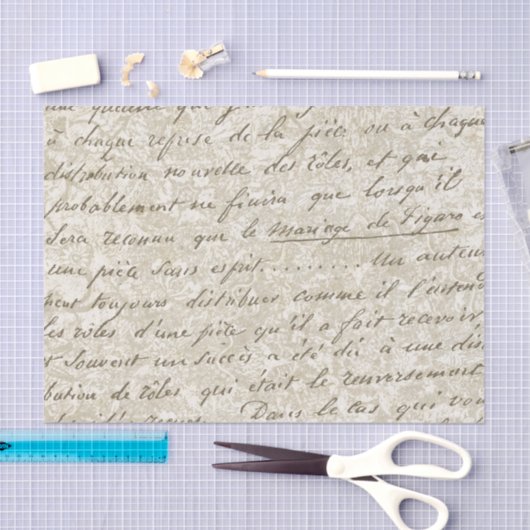 à chaque reprise de la pièce ou à chaque
distribution nouvelle des rôles, et qui
probablement ne finira que lorsqu'il
sera reconnu que le mariage de Figaro es
une pièce sans esprit......... Un auteur
ment toujours distribuer comme il l'entend
les rôles d'une pièce qu'il a fait recevoir
et souvent un succès a été dû à une dis
bution de rôles qui était le renversement
Dans le cas qui vou